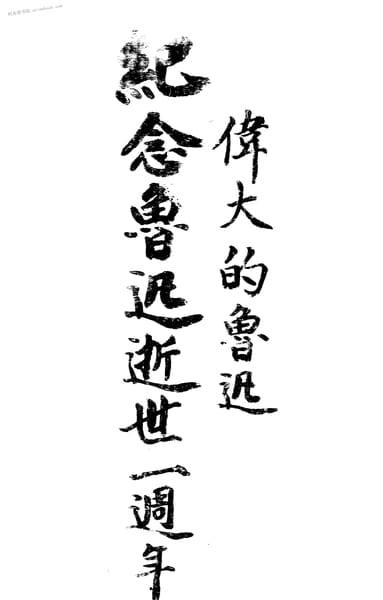 偉大的魯迅
紀念魯迅逝世一週年